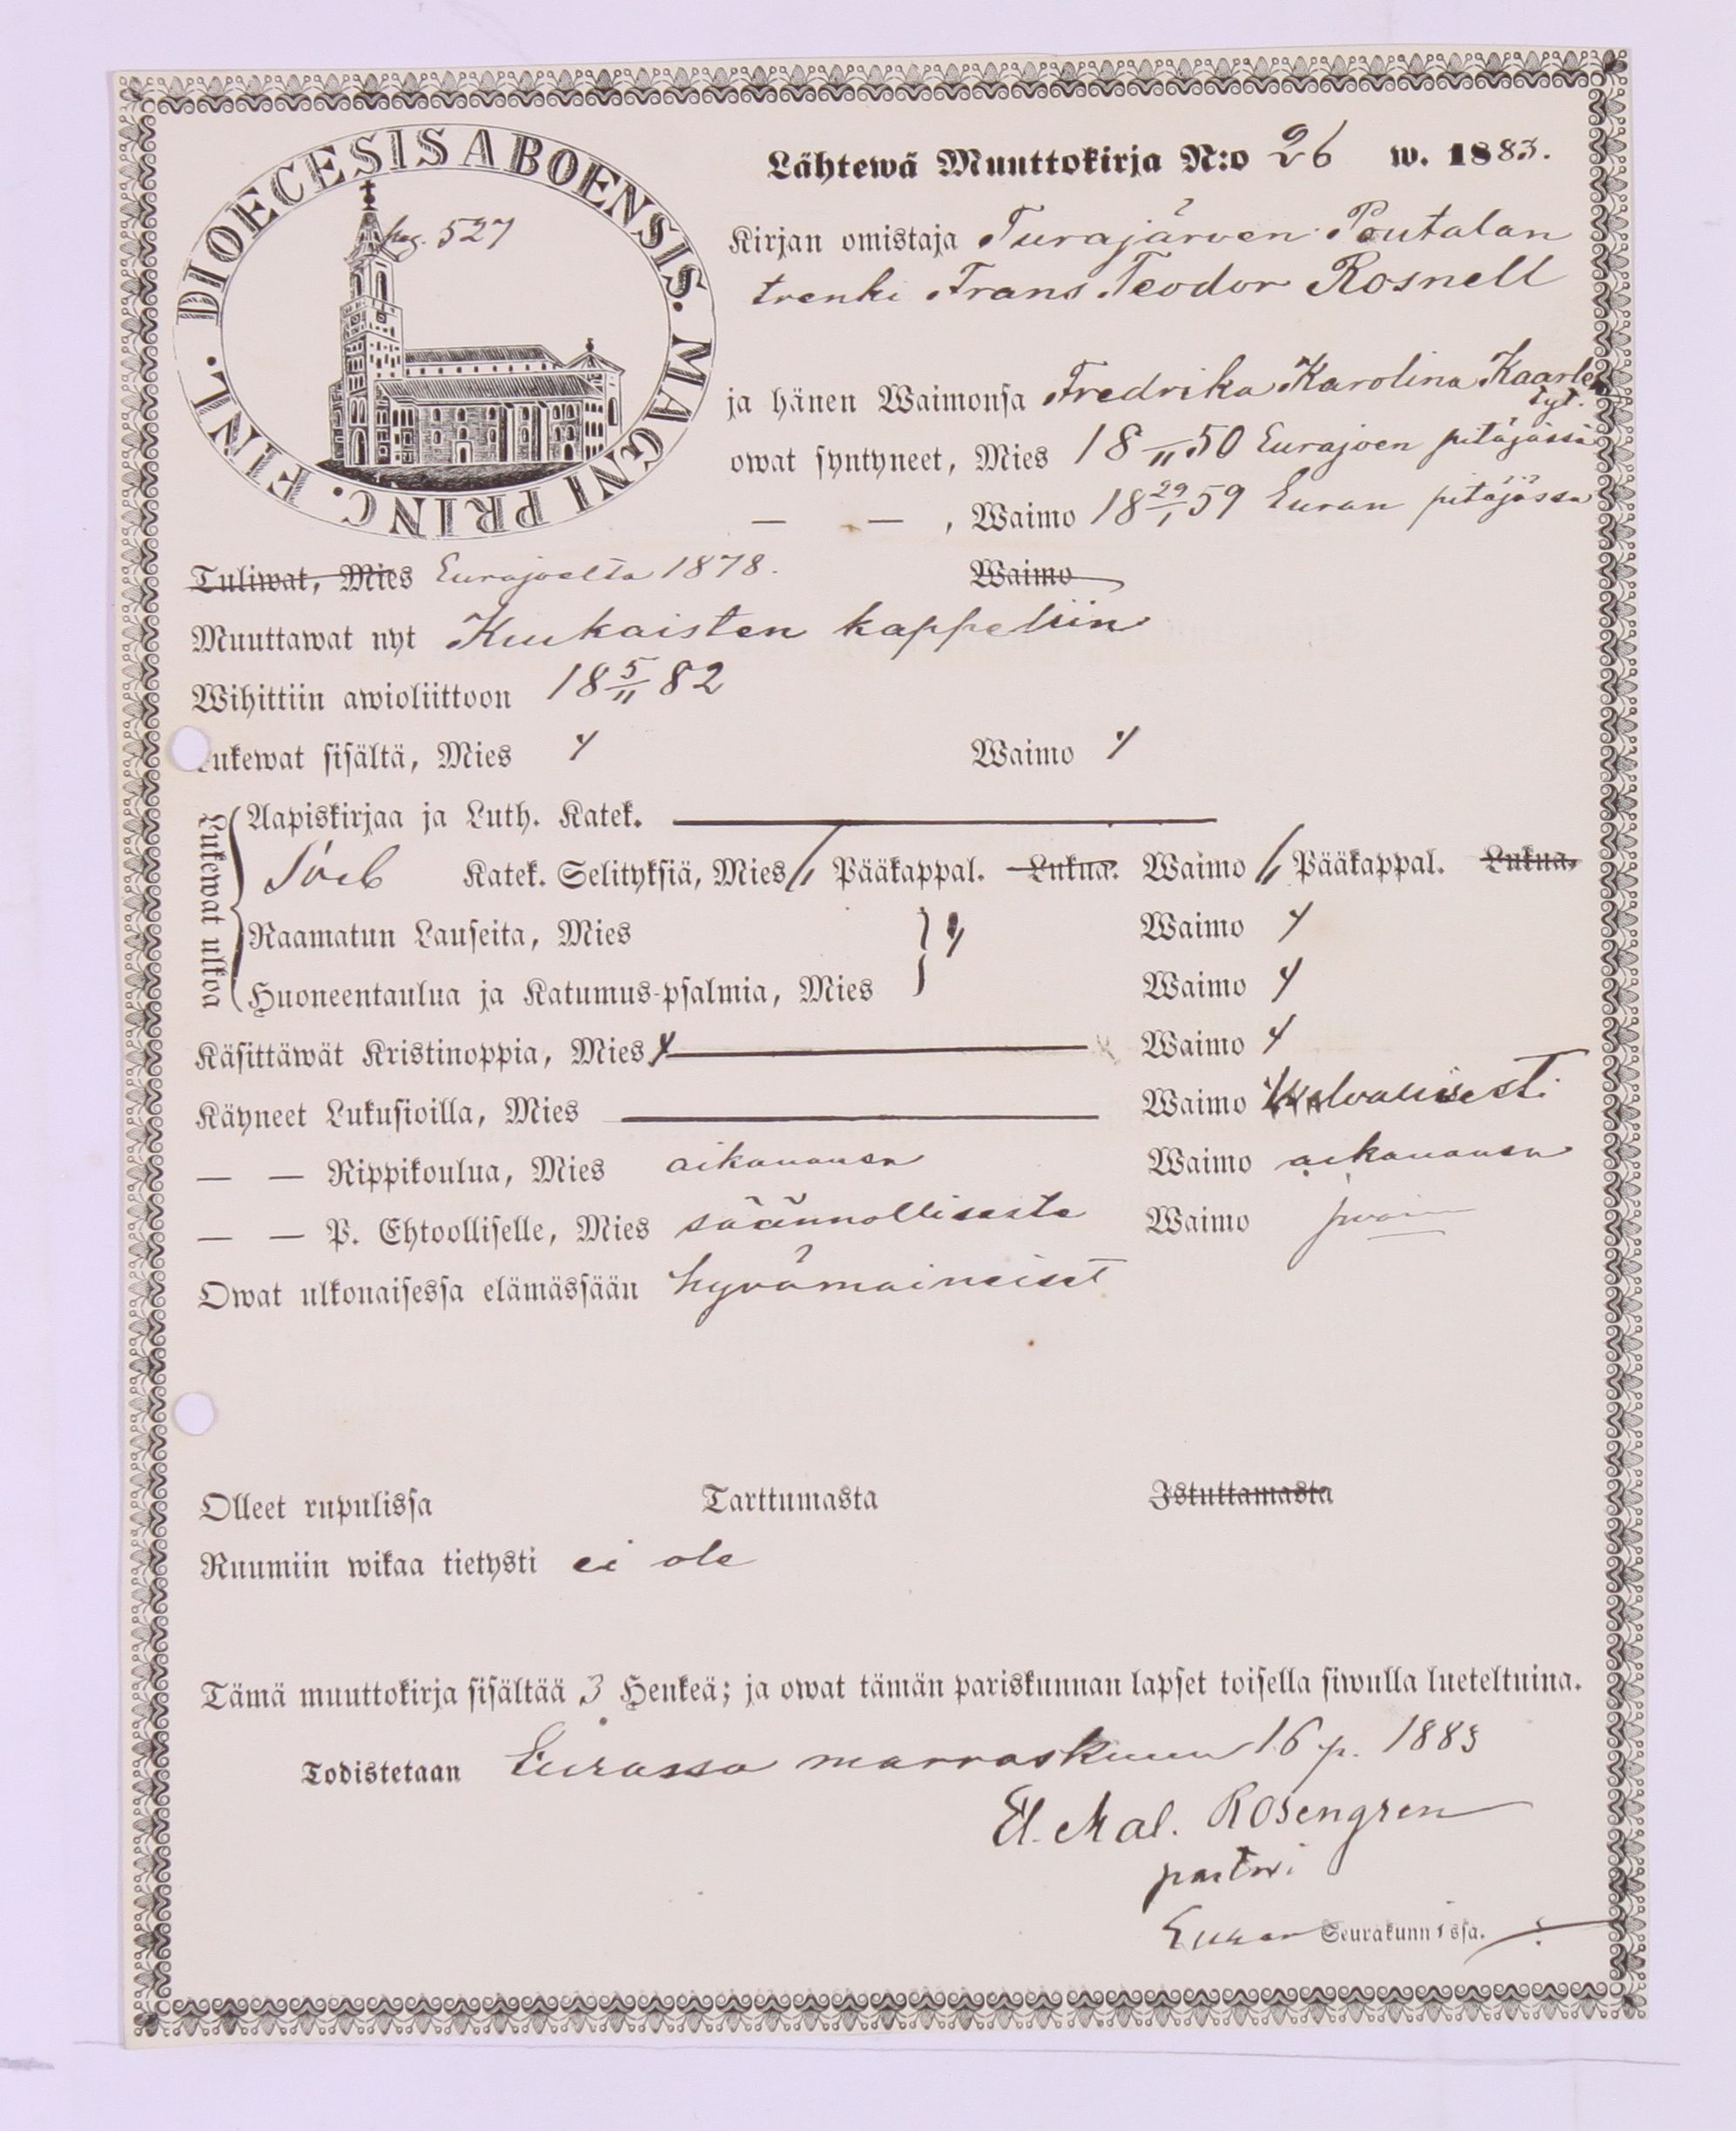 DIOECESIS ABOENSIS. MAGNI PRINC. FINL.
pag. 527
Lähtewä Muuttokirja N:o 26 w. 1883.
Kirjan omistaja Turajärven Poutalan
trenki Frans Teodor Rosnell
ja hänen Waimonsa Fredrika Karolina Kaarlen
tyt.
owat syntyneet, Mies 18 — 11 50 Eurajoen pitäjässä
— — , Waimo 18 29/1 59 Euran pitäjässä
Tuliwat, Mies Eurajoelta 1878. Waimo
Muuttawat nyt Kiukaisten kappeliin
Wihittiin awioliittoon 18 5/11 82
ukewat sisältä, Mies Waimo
Lukewat ulkoa
Aapiskirjaa ja Luth. Katek.
Katek. Selityksiä, Mies Pääkappal. Lukua. Waimo Pääkappal. Lukua.
Raamatun Lauseita, Mies Waimo
Huoneentaulua ja Katumus-psalmia, Mies Waimo
Käsittäwät Kristinoppia, Mies Waimo
Käyneet Lukusioilla, Mies Waimo
— — Rippikoulua, Mies aikanansa Waimo aikanansa
— — P. Ehtoolliselle, Mies säännöllisesti Waimo
Owat ulkonaisessa elämässään hyvämaineiset
Olleet rupulissa Tarttumasta Istuttamasta
Ruumiin wikaa tietysti ei ole
Tämä muuttokirja sisältää 3 Henkeä; ja owat tämän pariskunnan lapset toisella siwulla lueteltuina.
Todistetaan Eurassa marraskuun 16 p. 1883
El. Mal. Rosengren
pastori
Euran Seurakunnassa.